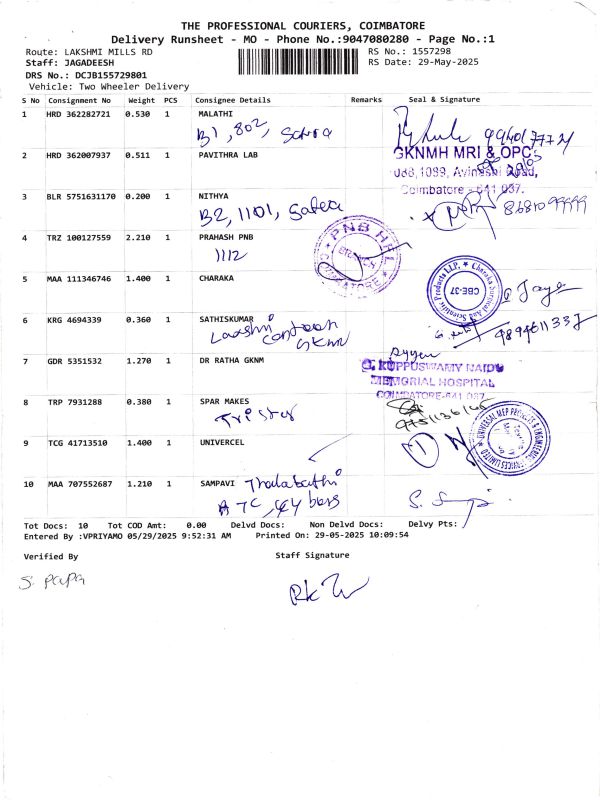 THE PROFESSIONAL COURIERS, COIMBATORE
Delivery Runsheet - MO - Phone No.:9047080280 - Page No.:1
Route: LAKSHMI MILLS RD RS No.: 1557298
Staff: JAGADEESH RS Date: 29-May-2025
DRS No.: DCJB155729801
Vehicle: Two Wheeler Delivery
S No Consignment No Weight PCS Consignee Details Remarks Seal & Signature
1 HRD 362282721 0.530 1 MALATHI
B1, 802,
2 HRD 362007937 0.511 1 PAVITHRA LAB
GKNMH MRI & OPC
1089, Avinashi Road,
Coimbatore - 641 037.
3 BLR 5751631170 0.200 1 NITHYA
B2, 1101,
4 TRZ 100127559 2.210 1 PRAHASH PNB
1112
PNB HFL
BRANCH
COIMBATORE
5 MAA 111346746 1.400 1 CHARAKA
Charaka Surgical And Scientific Products LLP.
CBE-37
6 KRG 4694339 0.360 1 SATHISKUMAR
Laxshmi canteen
GKNM
7 GDR 5351532 1.270 1 DR RATHA GKNM
G. KUPPUSWAMY NAIDU
MEMORIAL HOSPITAL
COIMBATORE-641 037.
8 TRP 7931288 0.380 1 SPAR MAKES
Tristar
9 TCG 41713510 1.400 1 UNIVERCEL
UNIVERSAL MEP PROJECTS & ENGINEERING SERVICES LIMITED
10 MAA 707552687 1.210 1 SAMPAVI Thalabathi
ATC,
Tot Docs: 10 Tot COD Amt: 0.00 Delvd Docs: Non Delvd Docs: Delvy Pts:
Entered By :VPRIYAMO 05/29/2025 9:52:31 AM Printed On: 29-05-2025 10:09:54
Verified By Staff Signature
S. PAPA